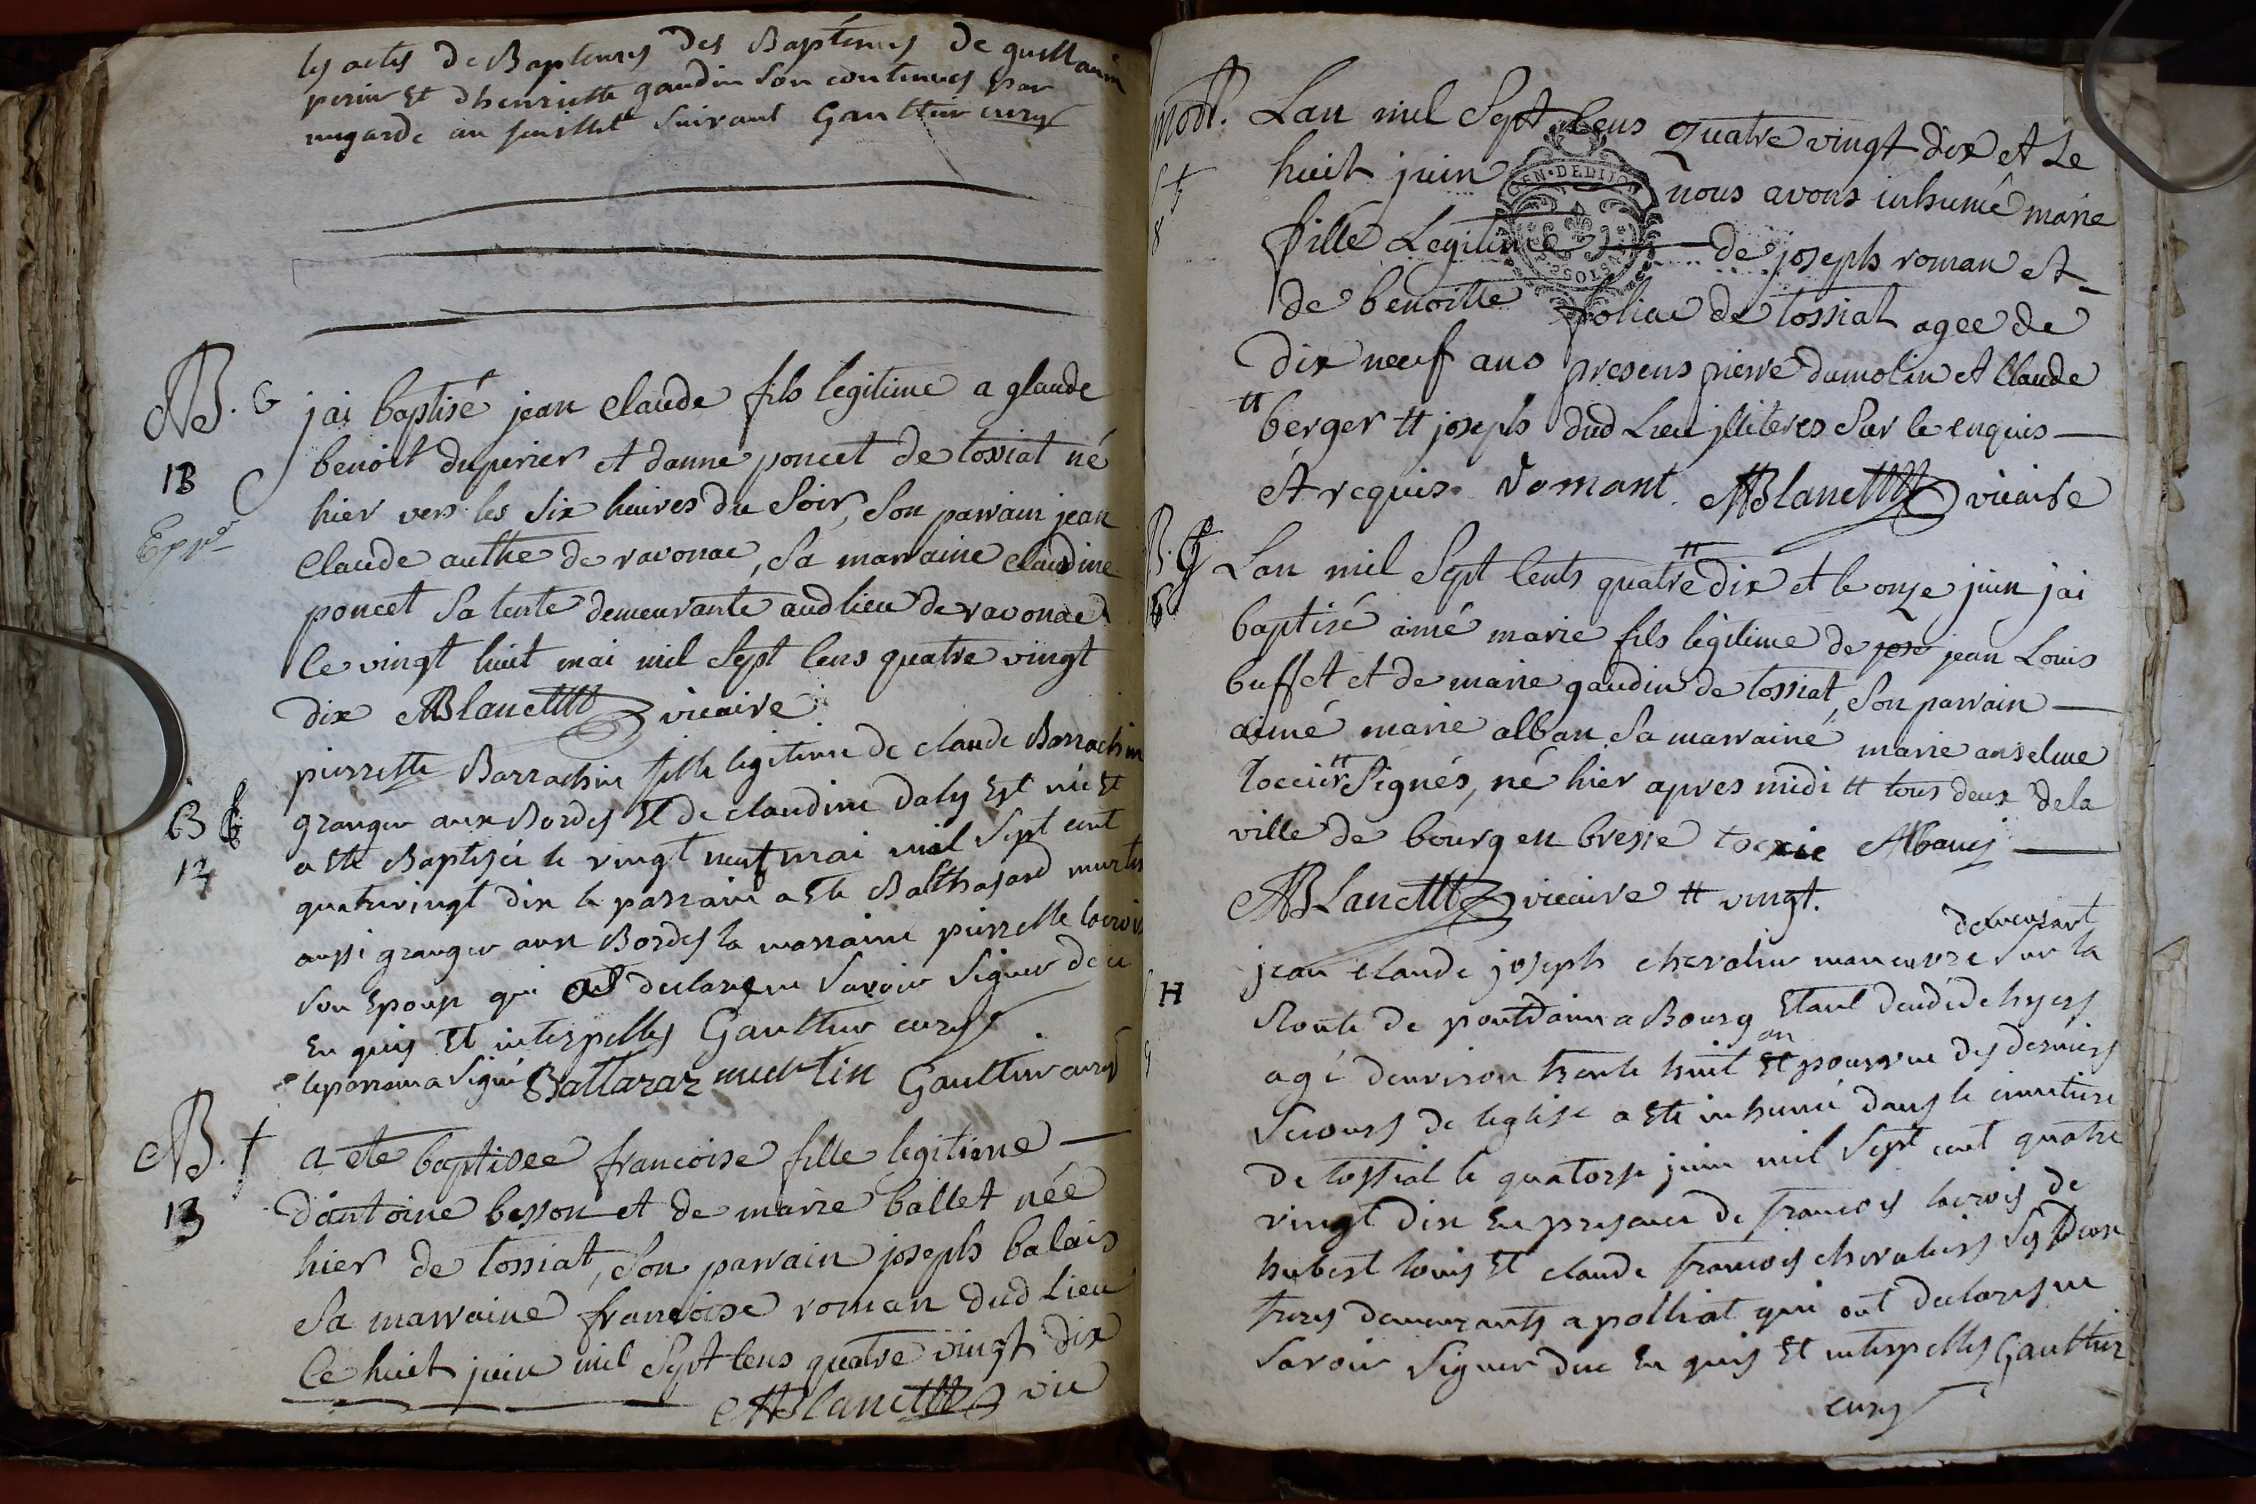 les actes de Baptemes des Baptêmes de guillaumin
perin Et d'henriette gaudin son contenues par
mégarde au feuillet suivant Gaultier curé
B. G
13
j'ai baptisé jean claude fils legitime a glaude
benoit duperier et d'anne poncet de tossiat né
hier vers les six heures du soir, son parrain jean
claude authe de ravonac, sa marraine claudine
poncet sa tente demeurante aud lieu de ravonac
le vingt huit mai mil sept cens quatre vingt
dix ABlanc vicaire
B 6
12
pierrette Barrachin fille legitime de claude Barrachin
granger aux Bordes Et de claudine daly Est née Et
a Ete Baptisée le vingt neuf mai mil sept cent
quatrevingt dix le parrain a Ete Balthasard murtin
aussi granger aux Bordes la marraine pierrette lacroix
son Epouse qui ont declaré ne savoir signer de ce
En quis Et interpellés Gaultier curé
le parrain a signé Battazar murtin Gaultier curé
B. f
13
a ete baptisée francoise fille legitime
d'antoine besson et de marie ballet née
hier de tossiat, son parrain joseph balais
sa marraine francoise roman dud lieu
le huit juin mil sept cens quatre vingt dix
ABlanc vic
mort.
8
Lan mil sept cens quatre vingt dix et le
huit juin nous avons inhumé marie
GEN. DE DIJON
fille legitime de joseph roman et
de benoitte foliac de tossiat agee de
dix neuf ans presens pierre dumolin et Claude
berger tt joseph dud lieu jlliteres sur le enquis
et requis. Romant. ABlanc vicaire
B. G
Lan mil sept cents quatre tt dix et le onze juin j'ai
baptisé aimé marie fils legitime de jose jean Louis
buffet et de marie gaudin de tossiat, son parrain
aimé marie alban sa marraine marie anselme
toccier tt signés, né hier apres midi tt tous deux de la
ville de bourg en bresse toccie Albans
ABlanc vicaire tt vingt.
demeurant
H
jean claude joseph chevalier manoeuvre sur la
Route de pontdain a Bourg Etant decedé d'hyers
an
agé denviron trente huit Et pourvue des derniers
secours de leglise a Ete inhumé dans le cimetiere
de tossiat le quatorze juin mil sept cent quatre
vingt dix En presence de francois lacroix de
hubert louis Et claude francois chevaliers ses deux
freres demeurants a polliat qui ont declarés ne
savoir signer de ce En quis Et interpellés Gaultier
curé